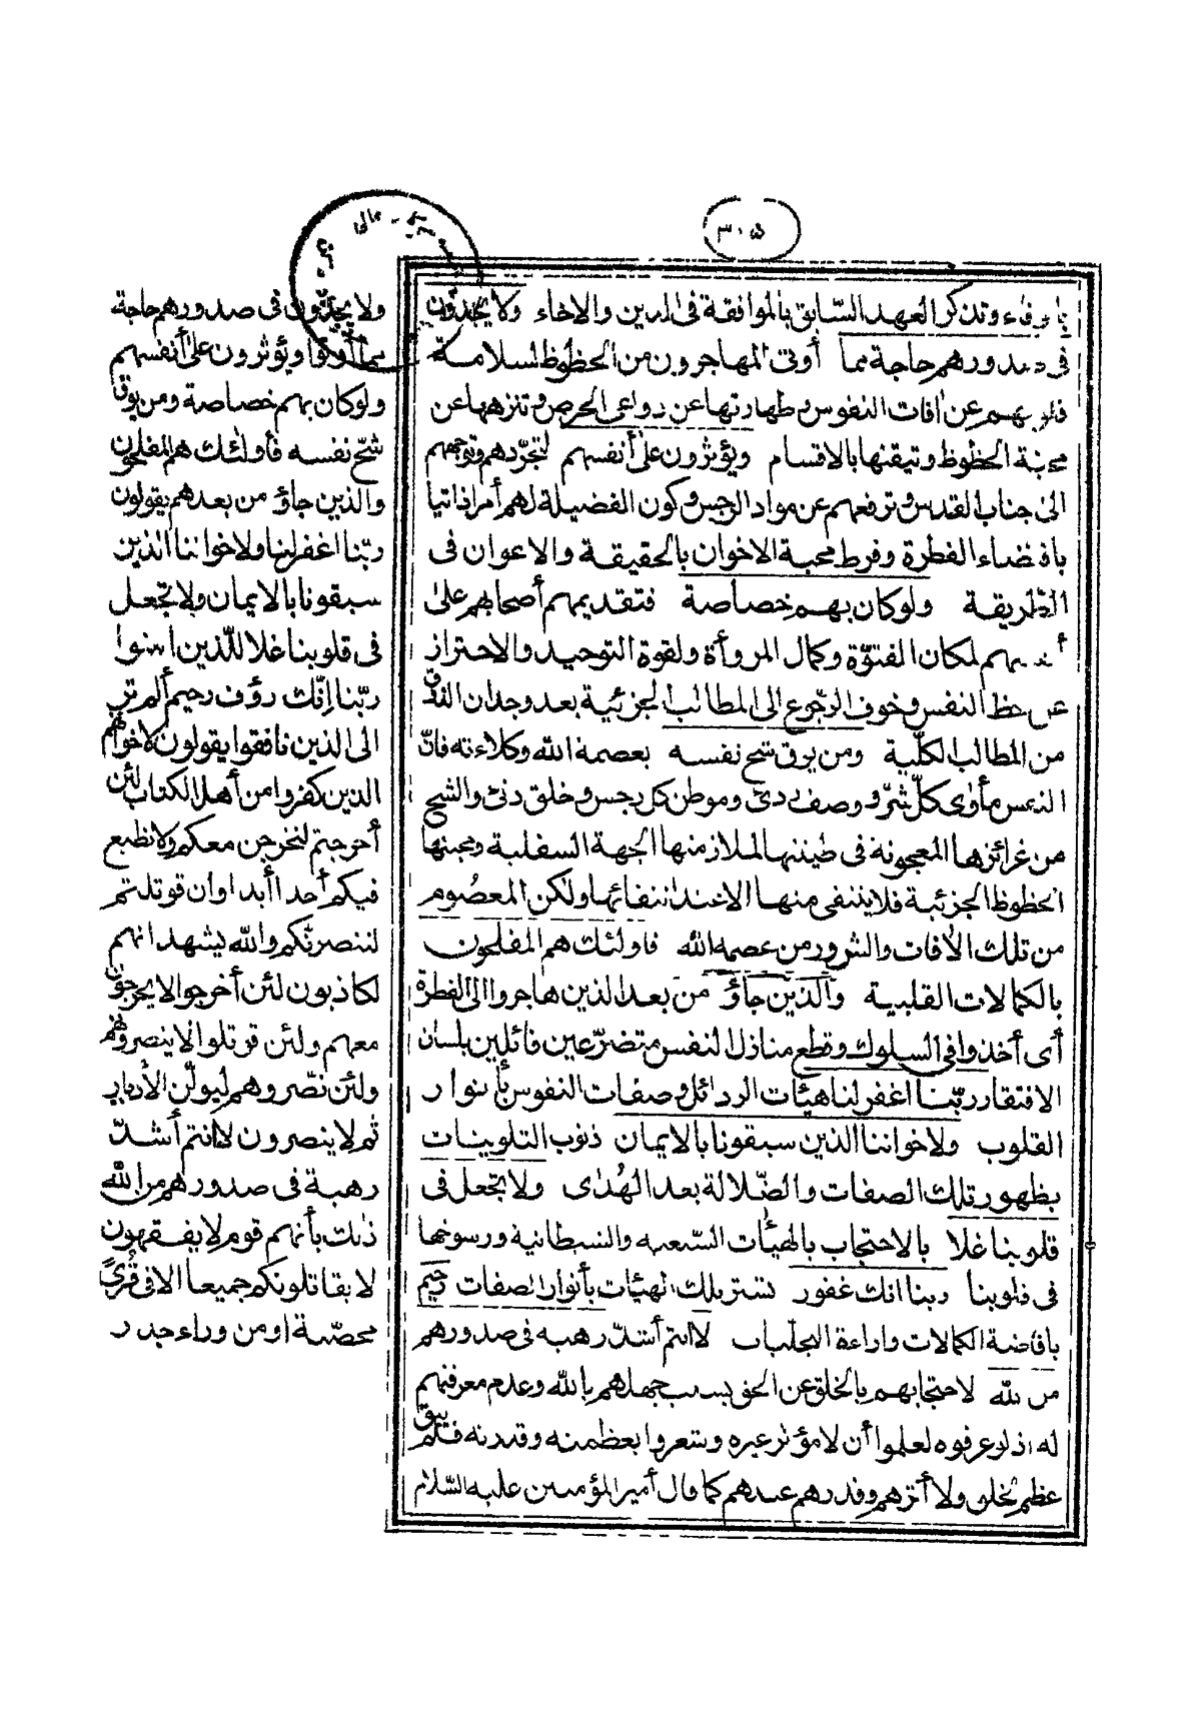 ٣٠٥
بالوفاء وتذكر العهد السّابق بالموافقة فى الدين والاخاء ولا يجدون
فى صدورهم حاجة مما أوتى المهاجرون من الحظوظ لسلامة
قلوبهم عن افات النفوس وطهارتها عن دواعى الحرص وتنزهها عن
محبة الحظوظ وتيقنها بالاقسام ويؤثرون على أنفسهم لتجرّدهم وتوجههم
الى جناب القدس وترفعهم عن مواد الرجس وكون الفضيلة لهم أمرا ذاتيا
باقتضاء الفطرة وفرط محبة الاخوان بالحقيقة والاعوان فى
الطريقة ولو كان بهم خصاصة فتقديمهم أصحابهم على
أنفسهم لمكان الفتوّة وكمال المروأة ولقوة التوحيد والاحتراز
عن حظ النفس وخوف الرّجوع الى المطالب الجزئية بعد وجدان الذوق
من المطالب الكلّية ومن يوق شح نفسه بعصمة الله وكلاءته فانّ
النفس مأوى كلّ شرّ ووصف ردىّ وموطن كل رجس وخلق دنىّ والشح
من غرائزها المعجونة فى طينتها لملازمتها الجهة السفلية ومحبتها
الحظوظ الجزئية فلا ينتفى منها الا عند انتفائها ولكن المعصُوم
من تلك الأفات والشرور من عصمه الله فاولئك هم المفلحون
بالكمالات القلبية والذين جاؤ من بعد الذين هاجروا الى الفطرة
أى أخذوا فى السلوك وقطع منازل النفس متضرّعين قائلين بلسان
الافتقار ربّنا اغفر لنا هيئات الرذائل وصفات النفوس بأنوار
القلوب ولاخواننا الذين سبقونا بالايمان ذنوب التلوينات
بظهور تلك الصفات والضّلالة بعد الهُدٰى ولا تجعل فى
قلوبنا غلا بالاحتجاب بالهيٰأت السّبعية والشيطانية ورسوخها
فى قلوبنا ربنا انك غفور تستر تلك الهيئات بأنوار الصفات رحيم
بافاضة الكمالات واراءة التجلّيات لانتم أشدّ رهبة فى صدورهم
من الله لاحتجابهم بالخلق عن الحق بسبب جهلهم بالله وعدم معرفتهم
له اذ لو عرفوه لعلموا أن لا مؤثر غيره وشعروا بعظمته وقدرته فلم يبق
عظم الخلق ولا أثرهم وقدرهم عندهم كما قال أمير المؤمنين عليه السّلام
ولا يجدون فى صدورهم حاجة
مما أوتوا ويؤثرون على أنفسهم
ولو كان بهم خصاصة ومن يوق
شحّ نفسه فأولئك هم المفلحون
والذين جاؤ من بعدهم يقولون
ربّنا اغفر لنا ولاخواننا الذين
سبقونا بالايمان ولا تجعل
فى قلوبنا غلا للّذين امنوا
ربّنا إنّك رؤف رحيم ألم تر
الى الذين نافقوا يقولون لاخوانهم
الذين كفروا من أهل الكتاب لئن
أخرجتم لنخرجن معكم ولا نطيع
فيكم أحدا أبدا وان قوتلتم
لننصرنّكم والله يشهد انهم
لكاذبون لئن أخرجوا لا يخرجون
معهم ولئن قوتلوا لا ينصرونهم
ولئن نصّروهم ليولّن الأدبار
ثم لا ينصرون لأنتم أشدّ
رهبة فى صدورهم من الله
ذٰلك بأنهم قوم لا يفقهون
لا يقاتلونكم جميعا الا فى قُرىً
محصّنة او من وراء جدر